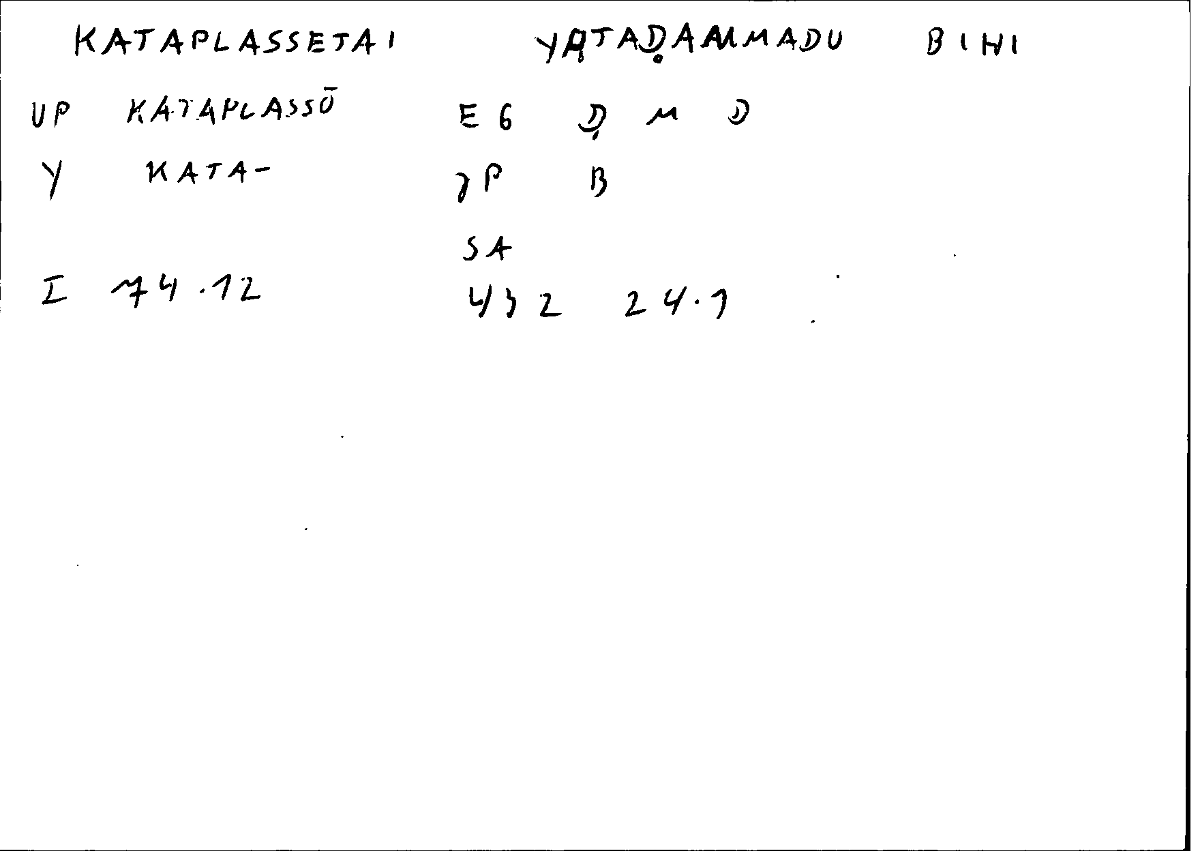 KATAPLASSETAI YATAḌAMMADU BIHI
UP KATAPLASSŌ EG Ḍ M D
Y KATA- P B
SA
I 74.12 432 24.1